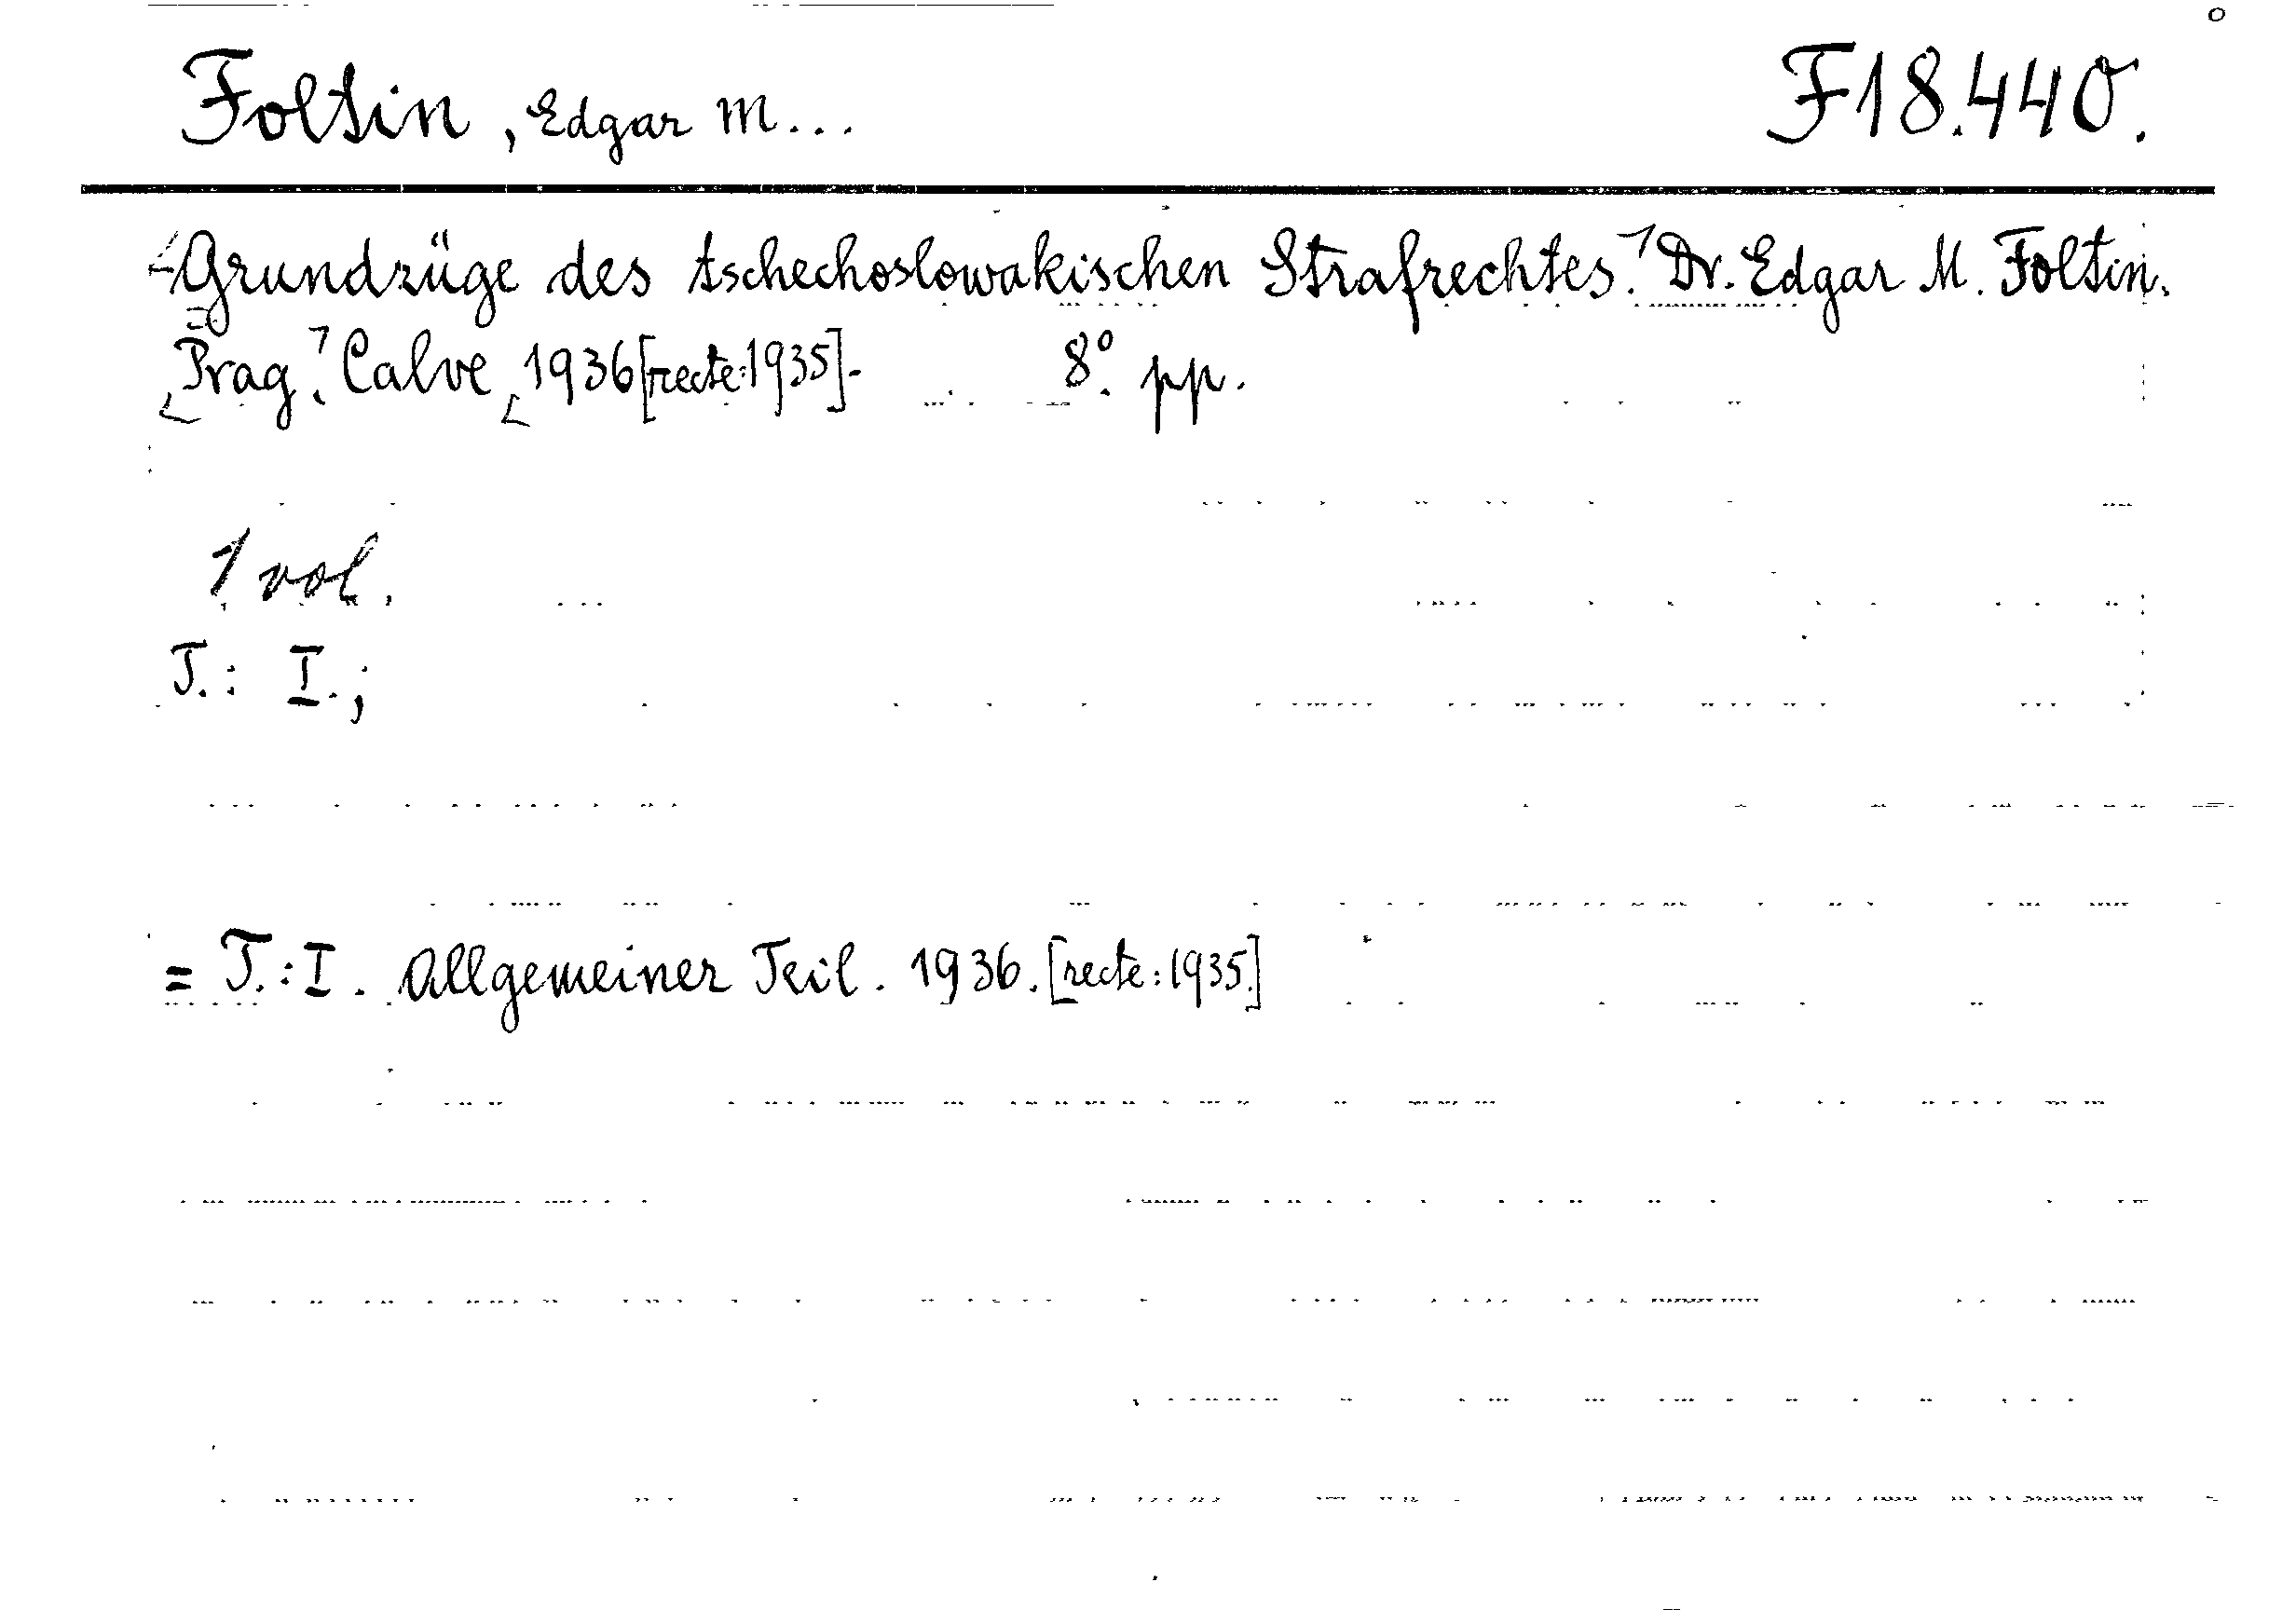 Foltin, Edgar M... F18.440.
Grundzüge des tschechoslowakischen Strafrechtes. Dr. Edgar M. Foltin.
Prag. Calve 1936 [recte: 1935]- 8º. pp.
1 vol.
T.: I.;
= T.: I. Allgemeiner Teil. 1936. [recte: 1935.]